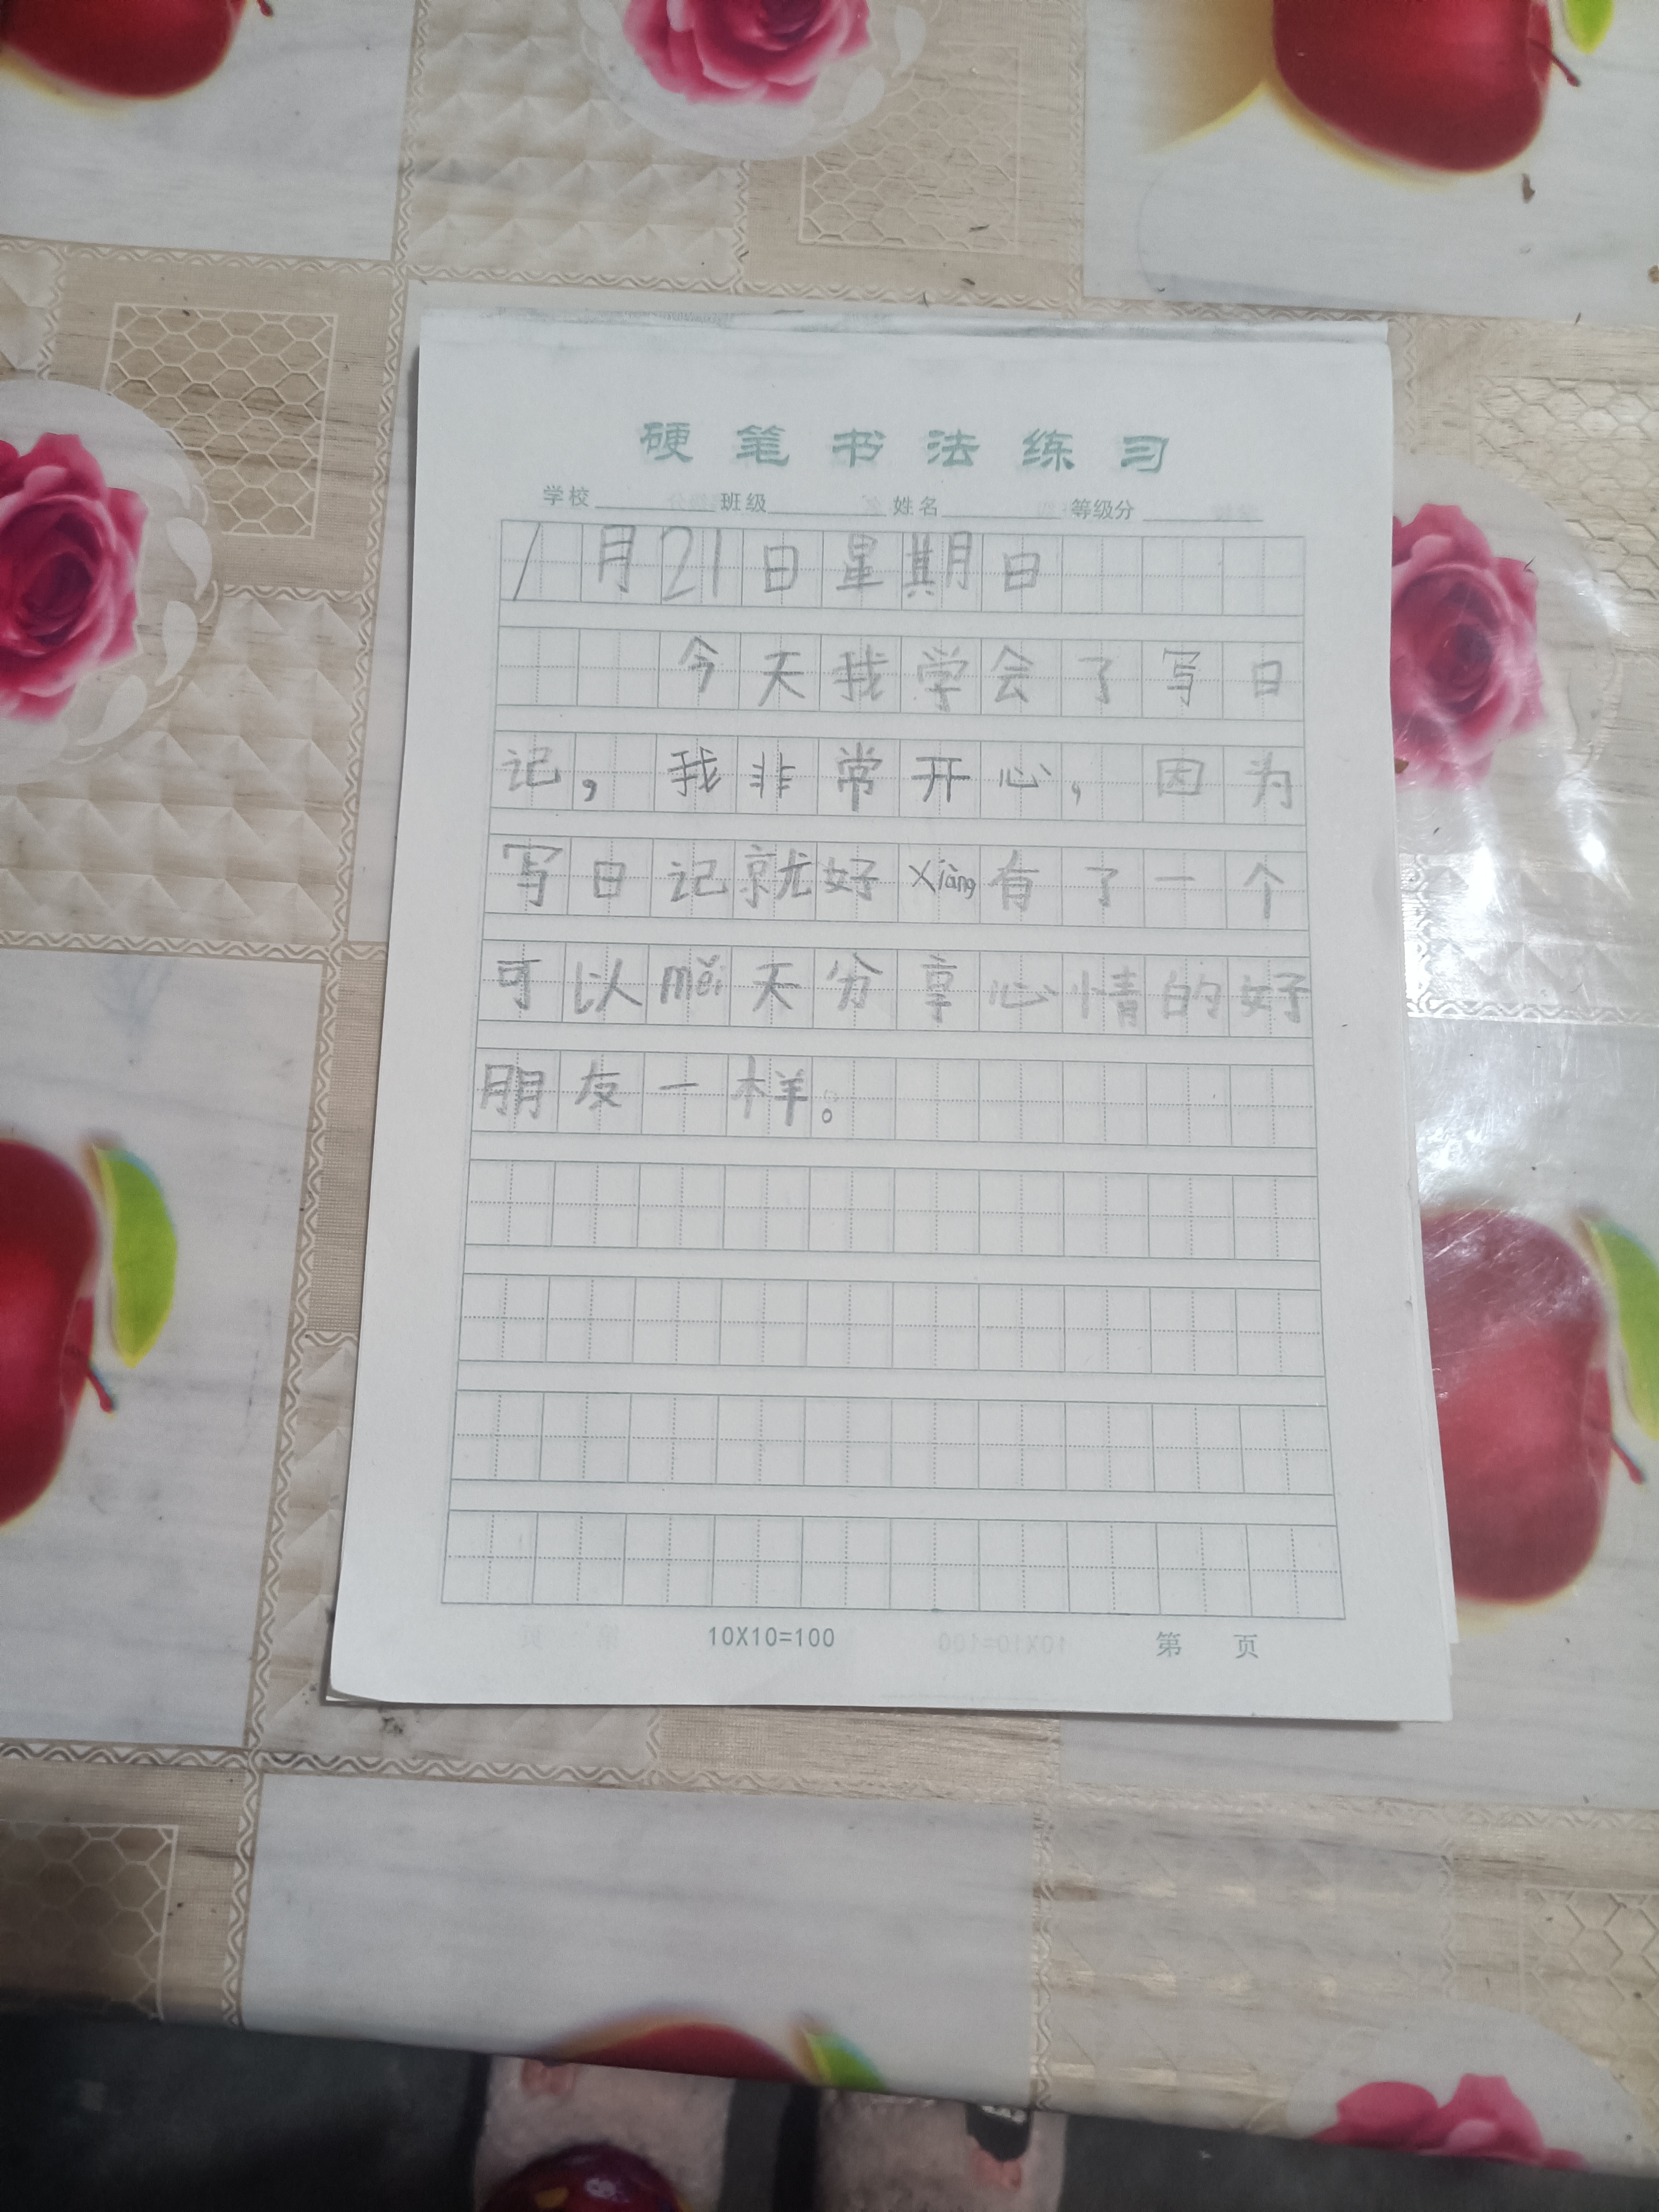 硬笔书法练习
学校 班级 姓名 等级分
1月21日星期日
今天我学会了写日
记，我非常开心，因为
写日记就好xiàng有了一个
可以měi天分享心情的好
朋友一样。
10X10=100 第 页